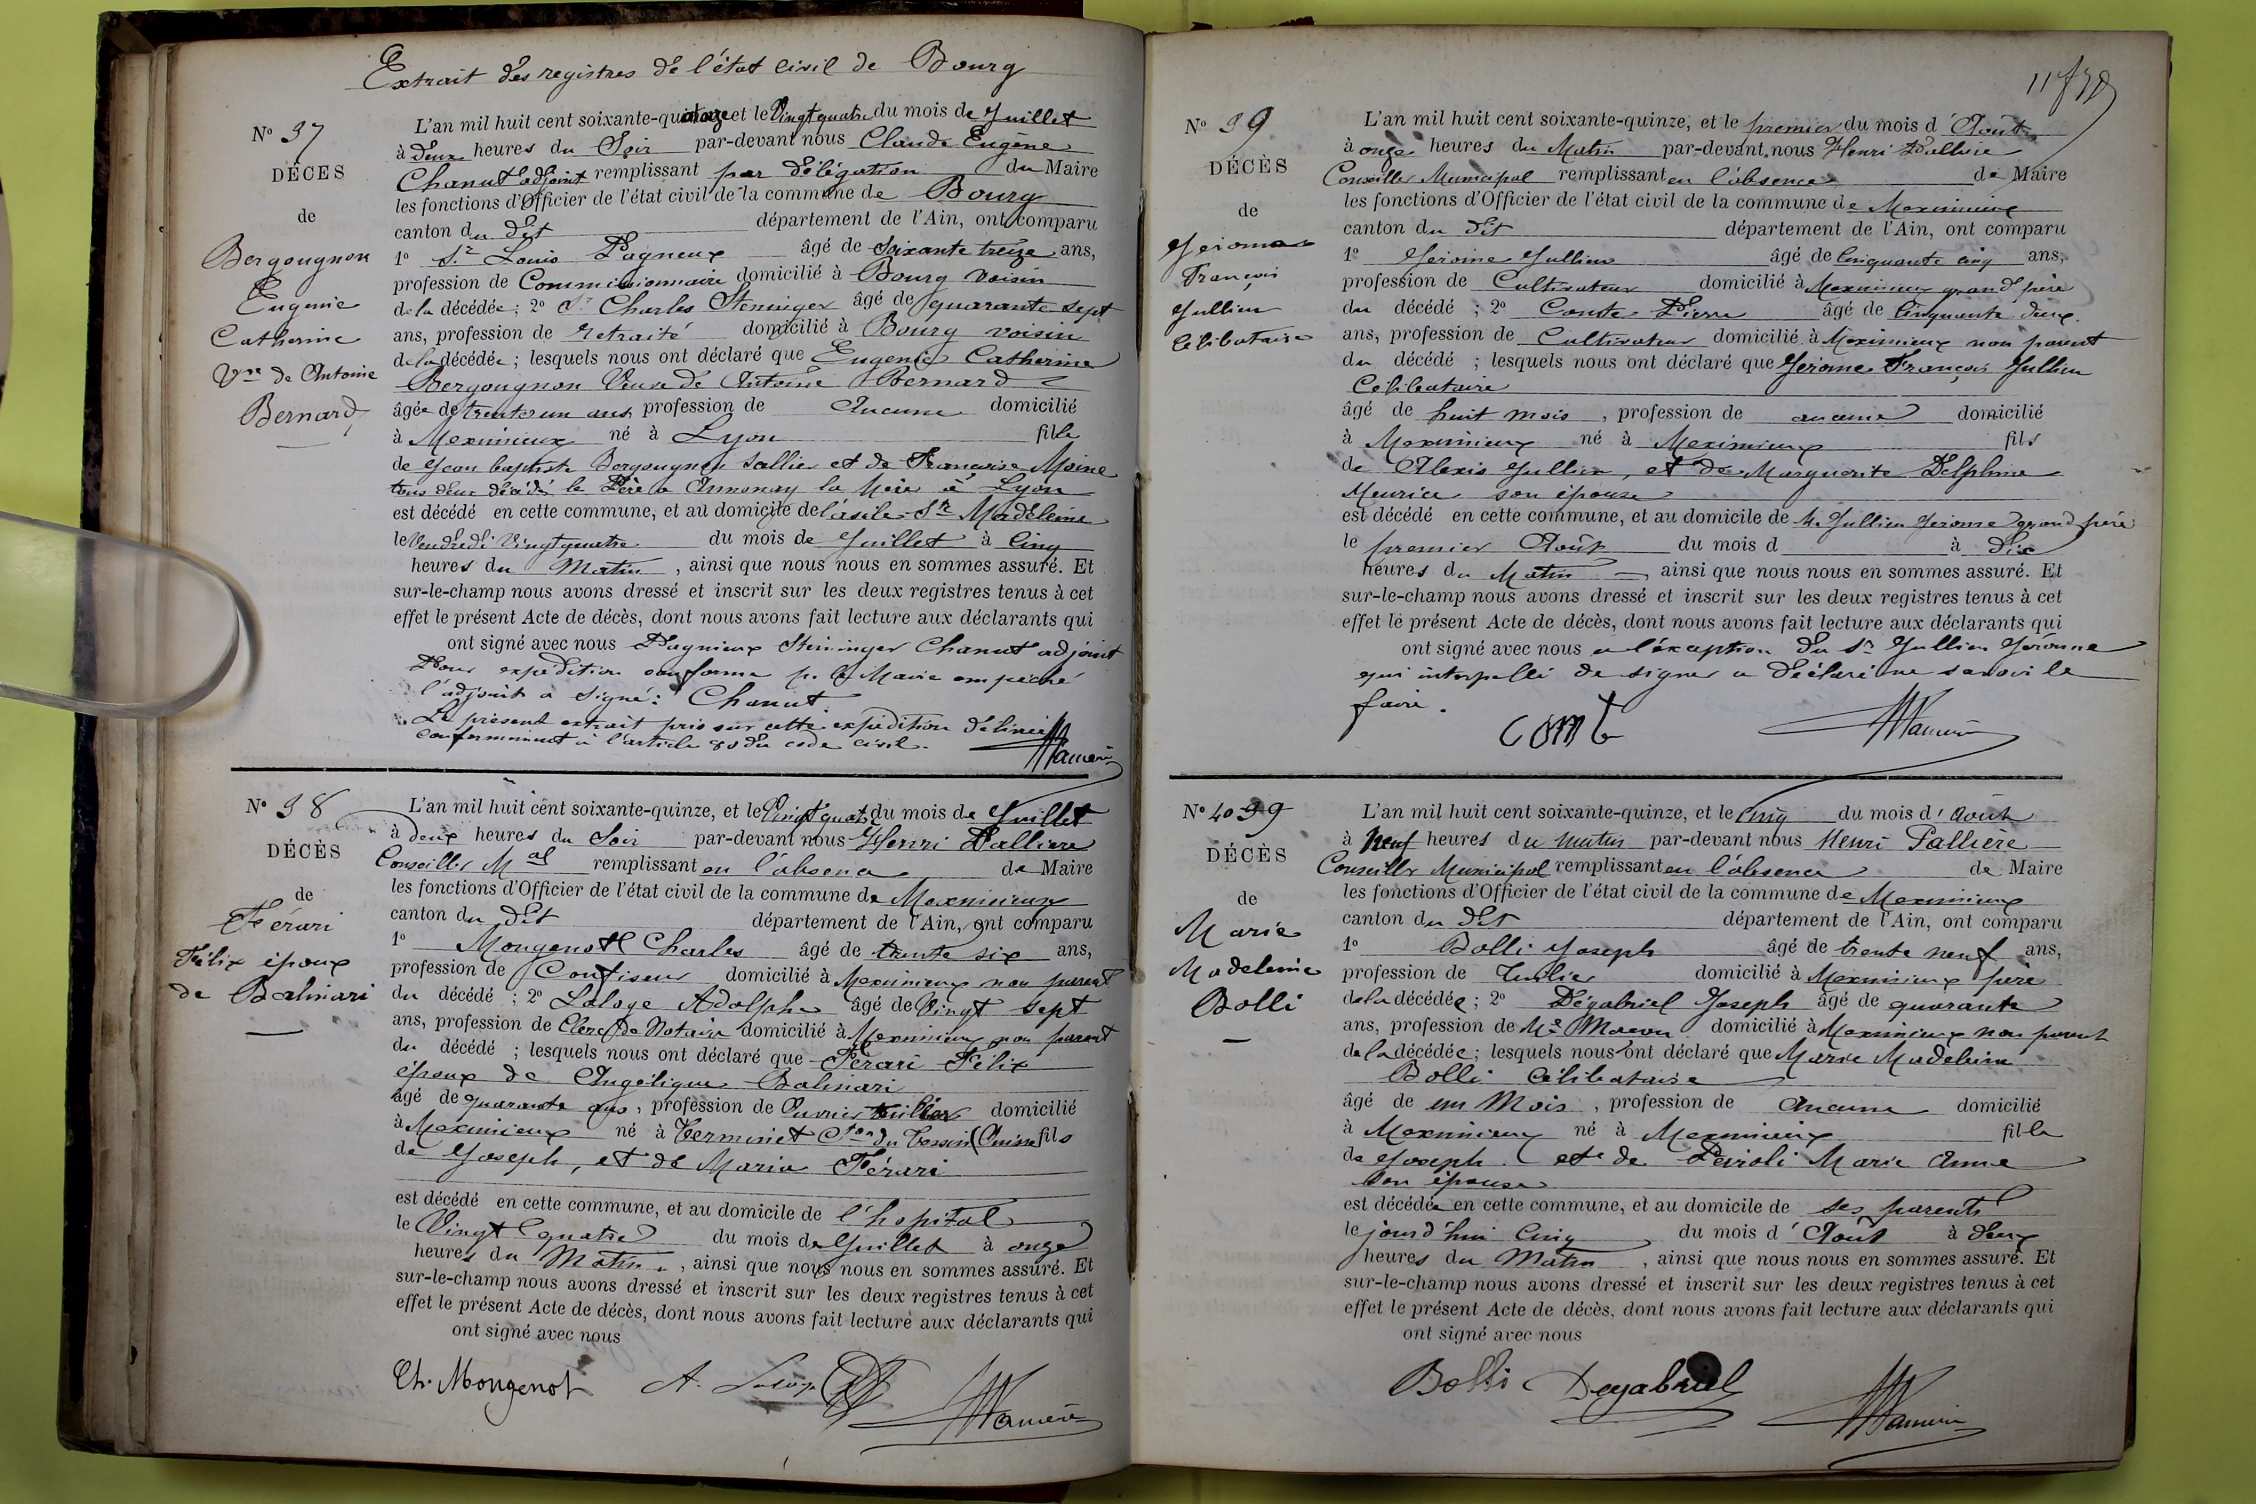 Extrait des registres de l'état civil de Bourg
N° 37
DÉCES
de
Bergougnon
Eugenie
Catherine
Vve de Antoine
Bernard
L'an mil huit cent soixante-quatorze et le Vingt quatre du mois de Juillet
à deux heures du Soir par-devant nous Claude Eugène
Chanut adjoint remplissant par délégation du Maire
les fonctions d'Officier de l'état civil de la commune de Bourg
canton du dit département de l'Ain, ont comparu
1° Sr Louis Pagneux âgé de Soixante treize ans,
profession de Commissionnaire domicilié à Bourg voisin
de la décédée ; 2° Sr Charles Steninger âgé de quarante sept
ans, profession de retraité domicilié à Bourg voisin
de la décédée ; lesquels nous ont déclaré que Eugenie Catherine
Bergougnon Veuve de Antoine Bernard
âgée de trente un ans profession de Aucune domicilié
à Meximieux né à Lyon fille
de Jean baptiste Bergougnon Sellier et de Françoise Moine
tous deux décédés le Père a Annonay la Mère à Lyon
est décédé en cette commune, et au domicile de l'asile Ste Madeleine
le Vendredi Vingt quatre du mois de Juillet à Cinq
heures du Matin, ainsi que nous nous en sommes assuré. Et
sur-le-champ nous avons dressé et inscrit sur les deux registres tenus à cet
effet le présent Acte de décès, dont nous avons fait lecture aux déclarants qui
ont signé avec nous Pagnieux Steininger Chanut adjoint
Pour expédition conforme pr le Maire empêché
l'adjoint a signé : Chanut
Le présent extrait pris sur cette expédition délivrée
conformément à l'article 80 du code civil.
N° 38
DÉCÈS
de
Férari
Félix époux
de Balinari
L'an mil huit cent soixante-quinze, et le Vingt quatre du mois de Juillet
à deux heures du Soir par-devant nous Henri Pallière
Conseiller Mal remplissant en l'absence de Maire
les fonctions d'Officier de l'état civil de la commune de Meximieux
canton du dit département de l'Ain, ont comparu
1° Mougenot Charles âgé de trente six ans,
profession de Confiseur domicilié à Meximieux non parent
du décédé ; 2° Laloge Adolphe âgé de Vingt sept
ans, profession de Clerc de Notaire domicilié à Meximieux non parent
du décédé ; lesquels nous ont déclaré que Férari Félix
époux de Angélique Balinari
âgé de quarante ans, profession de Ouvrier tuilier domicilié
à Meximieux né à Cton du Tessin (Suisse fils
de Joseph, et de Maria Férari
est décédé en cette commune, et au domicile de l'hopital
le Vingt quatre du mois de Juillet à onze
heures du Matin, ainsi que nous nous en sommes assuré. Et
sur-le-champ nous avons dressé et inscrit sur les deux registres tenus à cet
effet le présent Acte de décès, dont nous avons fait lecture aux déclarants qui
ont signé avec nous
Ch. Mougenot A. Laloge
N° 39
DÉCÈS
de
Jerome
François
Jullien
Célibataire
L'an mil huit cent soixante-quinze, et le premier du mois d'Août
à onze heures du Matin par-devant nous Henri Pallière
Conseiller Municipal remplissant en l'absence de Maire
les fonctions d'Officier de l'état civil de la commune de Meximieux
canton du dit département de l'Ain, ont comparu
1° Jérome Jullien âgé de Cinquante cinq ans,
profession de Cultivateur domicilié à Meximieux grand père
du décédé ; 2° Conte Pierre âgé de Cinquante deux
ans, profession de Cultivateur domicilié à Meximieux non parent
du décédé ; lesquels nous ont déclaré que Jérome François Jullien
Célibataire
âgé de huit mois, profession de aucune domicilié
à Meximieux né à Meximieux fils
de Alexis Jullien, et de Marguerite Delphine
Meurice son épouse
est décédé en cette commune, et au domicile de Mr Jullien Jerome grand père
le premier Août du mois d à dix
heures du Matin, ainsi que nous nous en sommes assuré. Et
sur-le-champ nous avons dressé et inscrit sur les deux registres tenus à cet
effet le présent Acte de décès, dont nous avons fait lecture aux déclarants qui
ont signé avec nous a l'exception du Sr Jullien Jérome
qui interpellé de signer a déclaré ne savoir le
faire.
Comte
N° 40 39
DÉCÈS
de
Marie
Madeleine
Bolli
L'an mil huit cent soixante-quinze, et le Cinq du mois d'Août
à Neuf heures du matin par-devant nous Henri Pallière
Conseiller Municipal remplissant en l'absence de Maire
les fonctions d'Officier de l'état civil de la commune de Meximieux
canton du dit département de l'Ain, ont comparu
1° Bolli Joseph âgé de trente neuf ans,
profession de Tuilier domicilié à Meximieux père
de la décédée ; 2° Dégabriel Joseph âgé de quarante
ans, profession de Me Macon domicilié à Meximieux non parent
de la décédée ; lesquels nous ont déclaré que Marie Madeleine
Bolli Célibataire
âgé de un Mois, profession de Aucune domicilié
à Meximieux né à Meximieux fille
de Joseph et de Marie Anne
son épouse
est décédée en cette commune, et au domicile de ses parents
le jourd'hui Cinq du mois d'Août à deux
heures du Matin, ainsi que nous nous en sommes assuré. Et
sur-le-champ nous avons dressé et inscrit sur les deux registres tenus à cet
effet le présent Acte de décès, dont nous avons fait lecture aux déclarants qui
ont signé avec nous
Bolli Degabriel